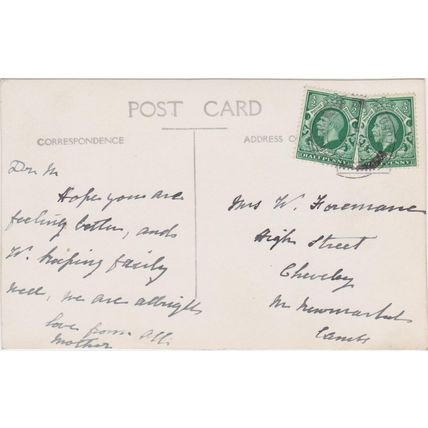 POST CARD
CORRESPONDENCE
ADDRESS O
HALFPENNY
PENNY
Dr M
Hope you are
feeling better, and
W. keeping fairly
well, we are allright
love from all
Mother
Mrs W. Foreman
High Street
Cheveley
Nr Newmarket
Cambs